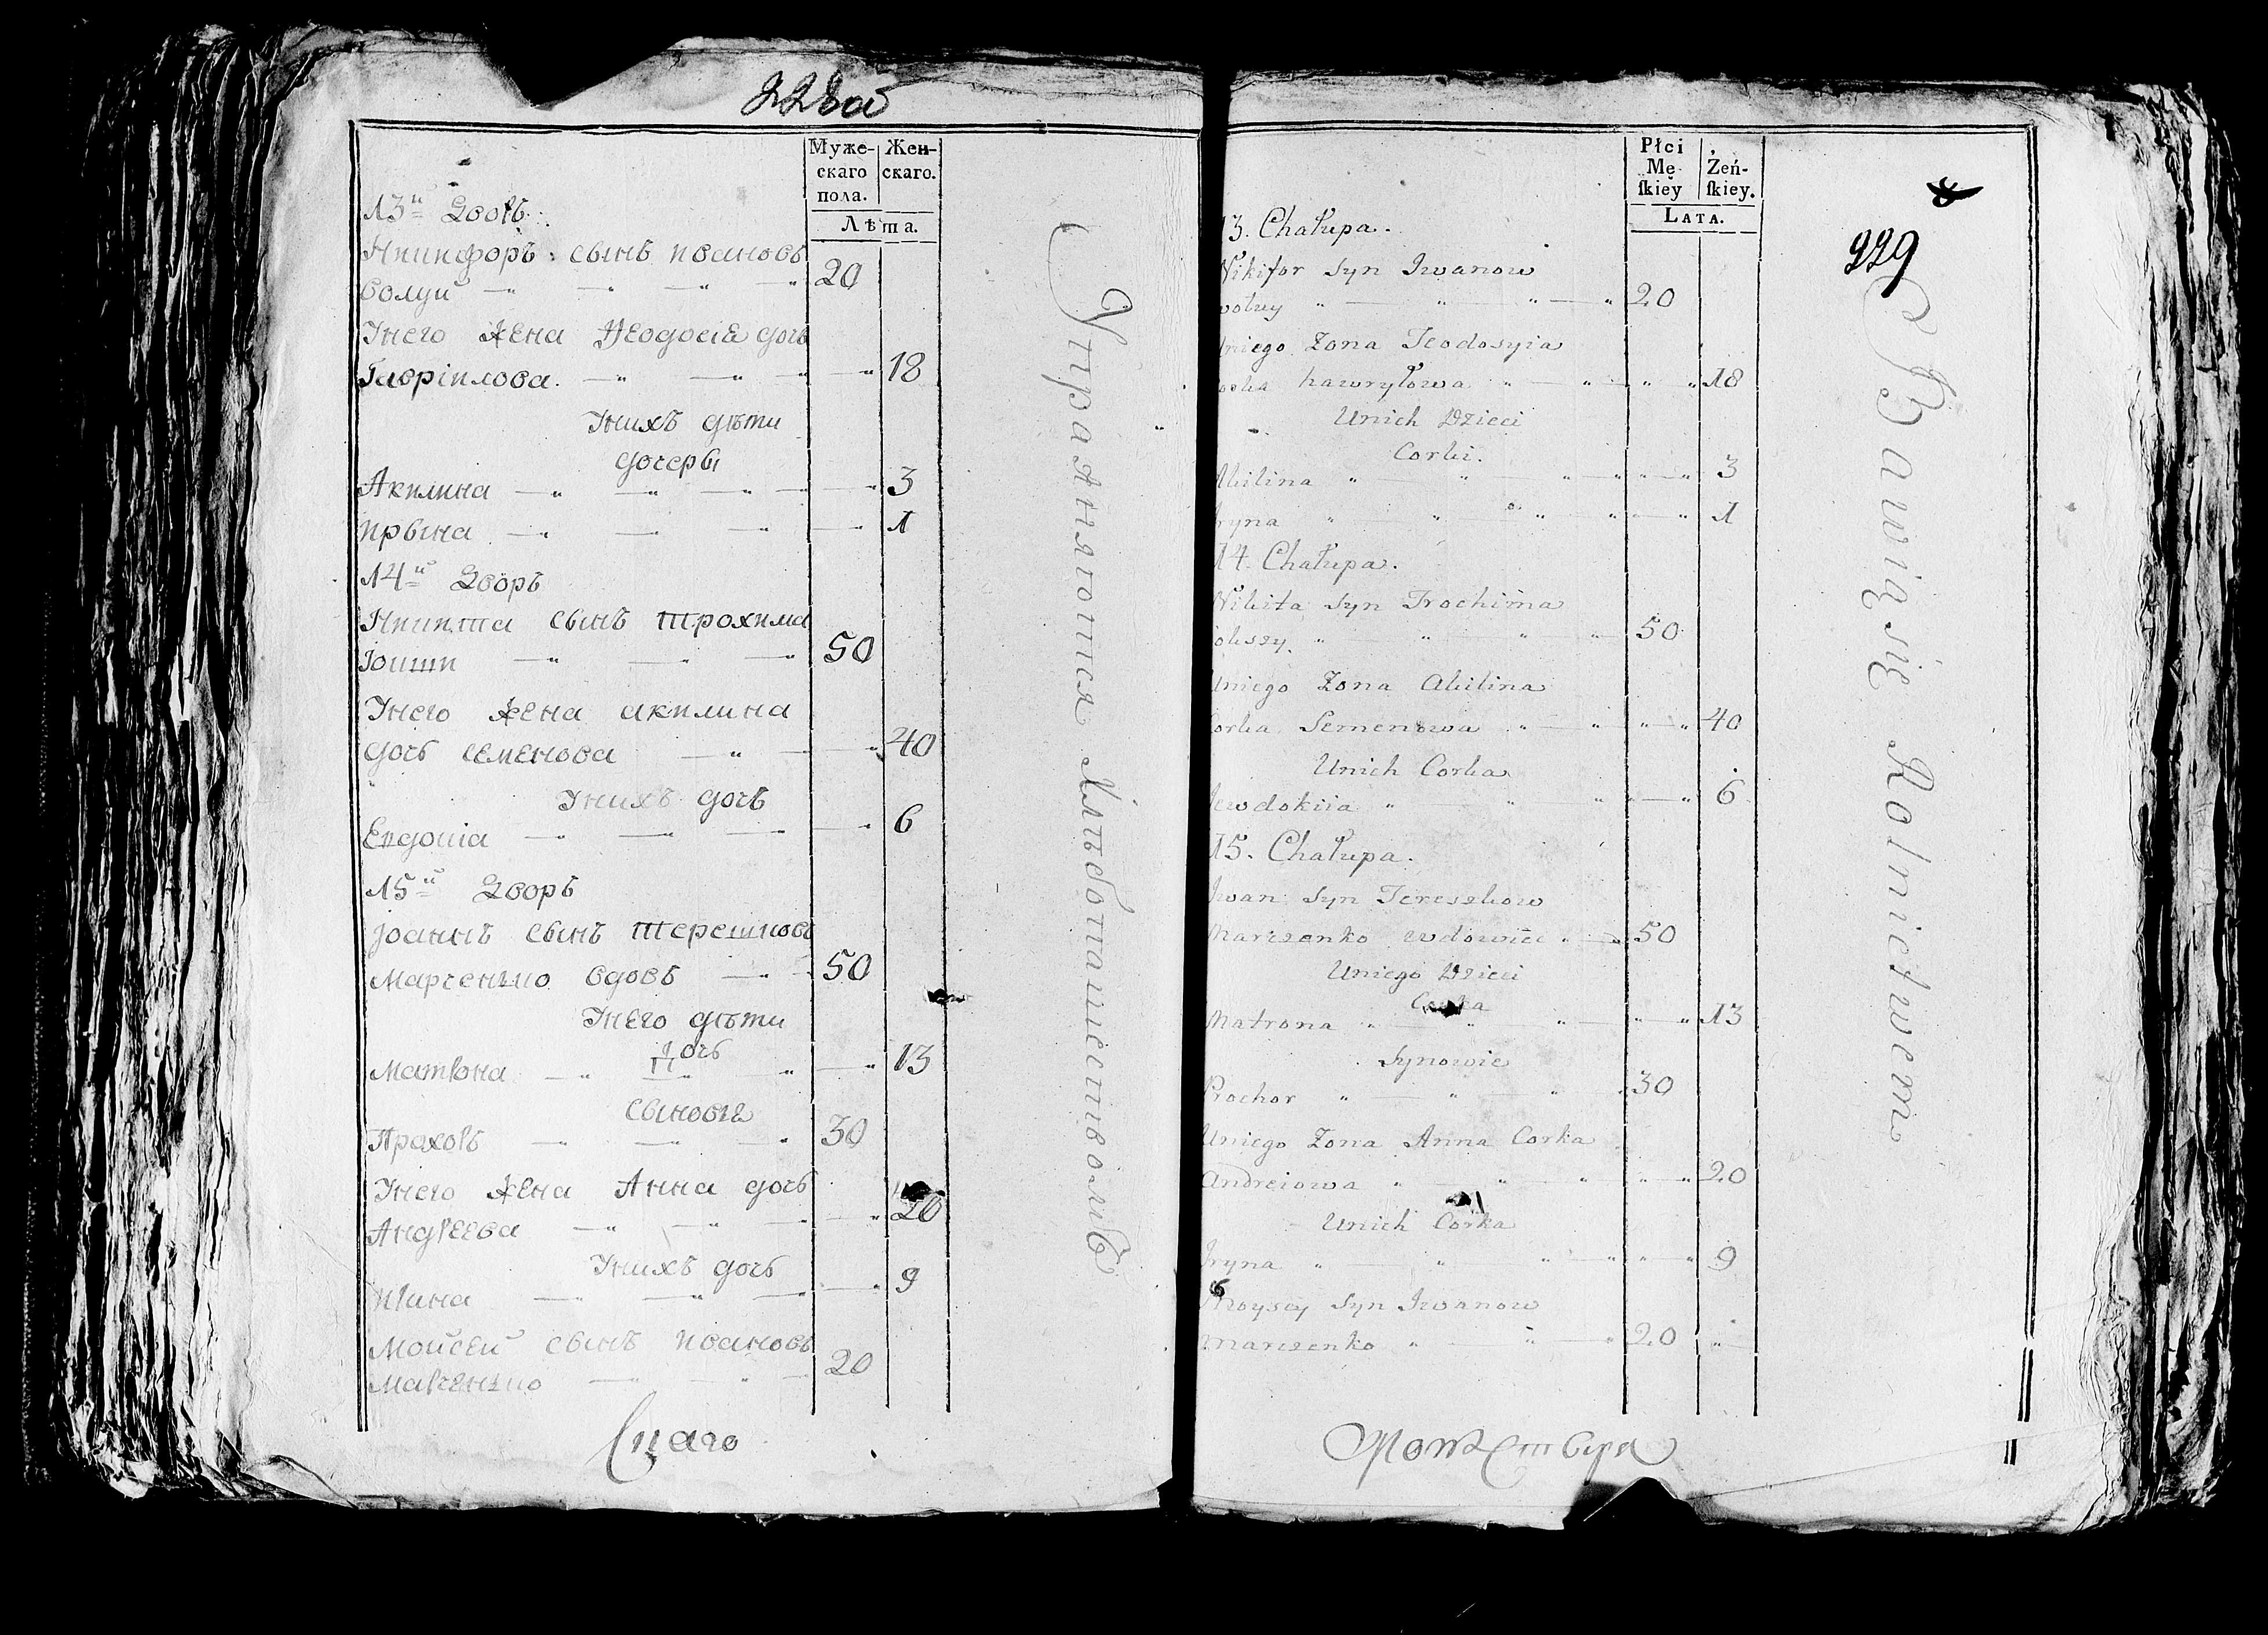 228об
Муже- Жен-
скаго скаго.
пола.
Лѣта.
13й Дворъ.
Никифоръ сынъ ивановъ
Волуй 20
Унего жена Феодосіа дочь
Гавріилова. 18
Унихъ дѣти
дочеры
Акилина 3
ирына 1
14й Дворъ
Никита сынъ трохима
50
Унего жена акилина
дочь семенова 40
Унихъ дочъ
Евдокіа 6
15й Дворъ
Іоаннъ сынъ терешковъ
Марченко вдовъ 50
Унего дѣти
дочь
Матрона 13
сыновья
Прахоръ 30
Унего жена Анна дочь
Андреева 20
Унихъ дочь
ирина 9
Мойсей сынъ ивановъ
Марченко 20
Упражняются Хлѣбопашествомъ
Płci Żeń-
Mę skiey.
skiey
LATA.
229
13. Chałupa.
Nikifor syn Iwanow
wołuy 20
Uniego Zona Teodosyia
corka hawryłowa 18
Unich Dzieci
Corki.
Akilina 3
Iryna 1
14. Chałupa.
Nikita syn Trochima
50
Uniego Zona Akilina
Corka Semenowa 40
Unich Corka
Jewdokiia 6
15. Chałupa.
Iwan syn Tereszkow
Marczenko wdowiec 50
Uniego Dzieci
Corka
Matrona 13
Synowie
Prochor 30
Uniego Zona Anna Corka
Andreiowa 20
Unich Corka
Iryna 9
Moysey Syn Iwanow
Marczenko 20
Bawią się Rolnictwem